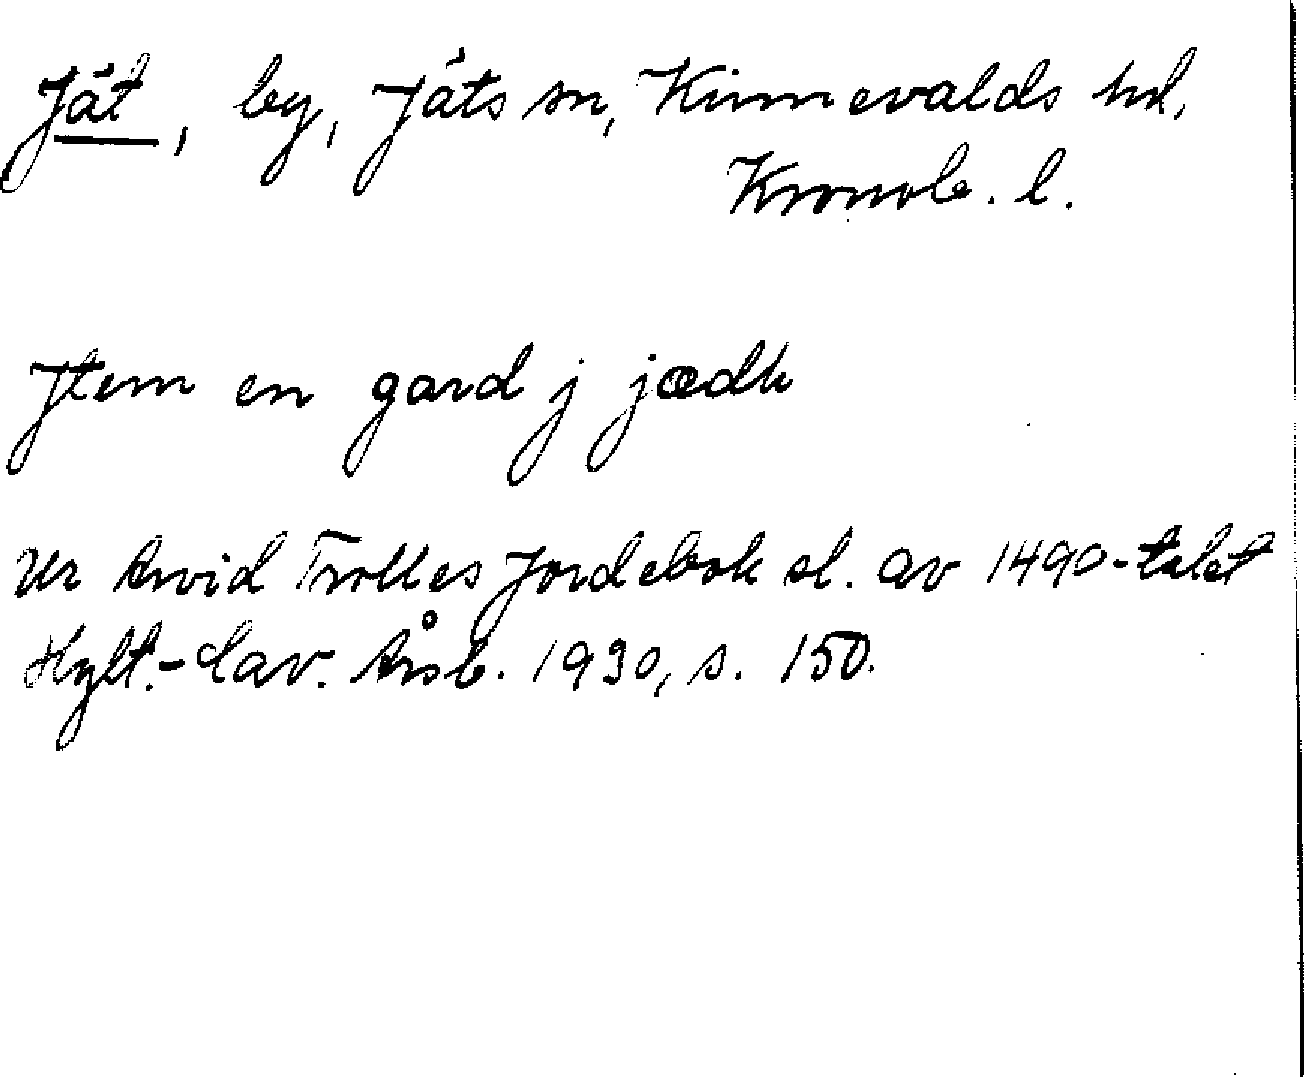 Jät, by, Jäts sn, Kinnevalds hd,
Kronob. l.
Jtem en gard j jædh
Ur Arvid Trolles Jordebok sl. av 1490-talet
Hylt.-Cav. Årsb. 1930, s. 150.